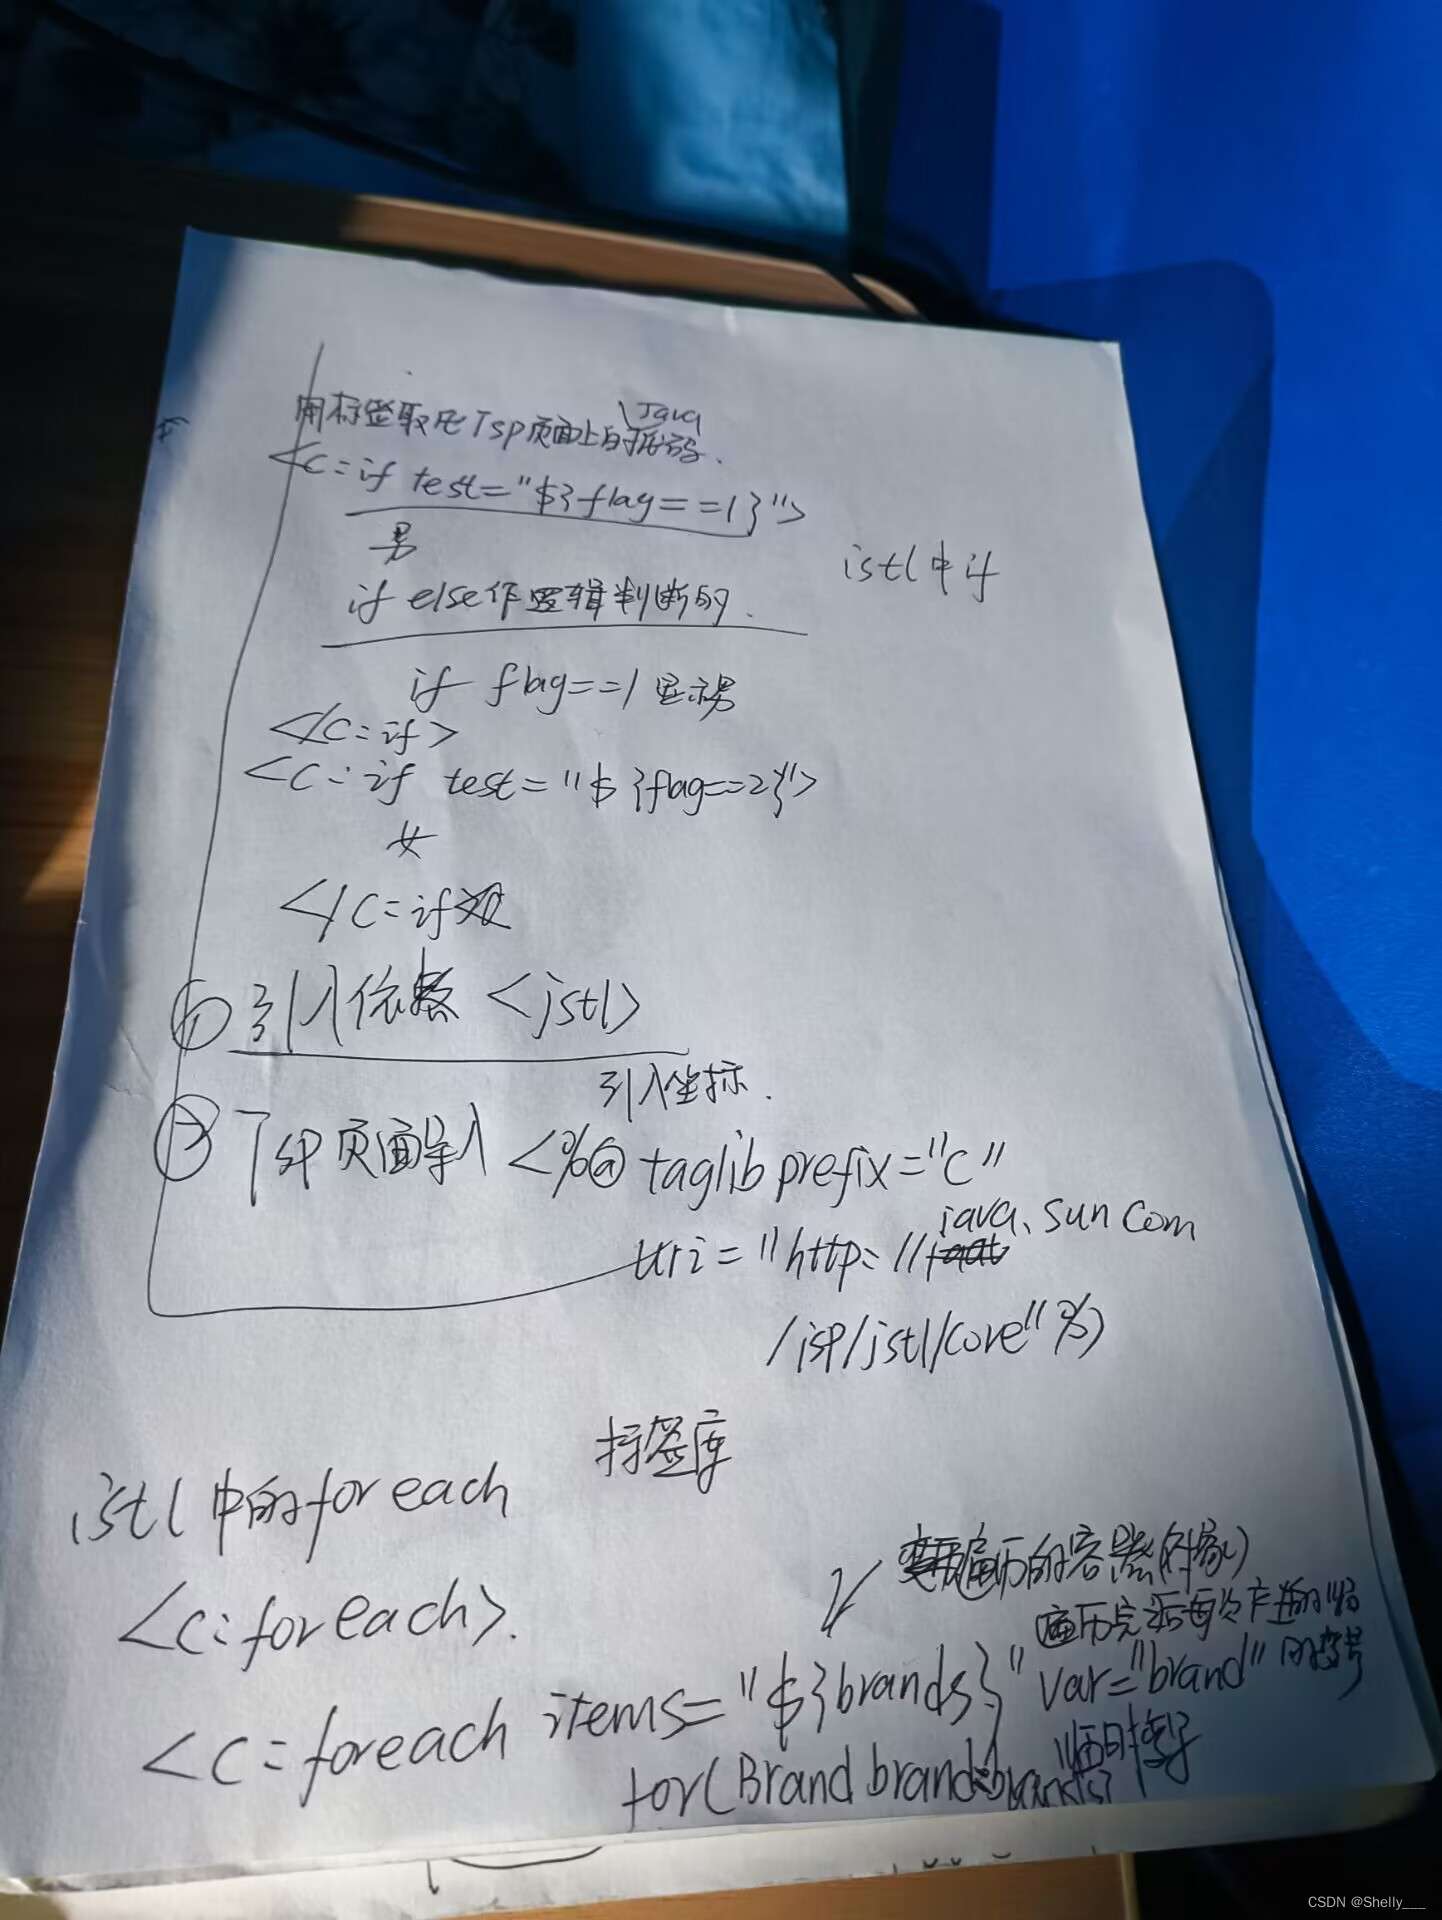 用标签取代Jsp页面上的Java代码.
<c:if test="${flag==1}">
男
jstl中if
if else作逻辑判断的.
if flag==1 显示男
</c:if>
<c:if test="${flag==2}">
女
</c:if
① 引入依赖 <jstl>
引入坐标.
② Jsp页面导入 <%@ taglib prefix="c"
uri="http://java.sun com
/jsp/jstl/core"%>
标签库
jstl中的foreach
<c:foreach>.
遍历的容器(对象)
遍历完 每次产生的临
<c:foreach items="${brands}" var="brand" 时变量
for(Brand brand:brands) 临时
CSDN @Shelly___